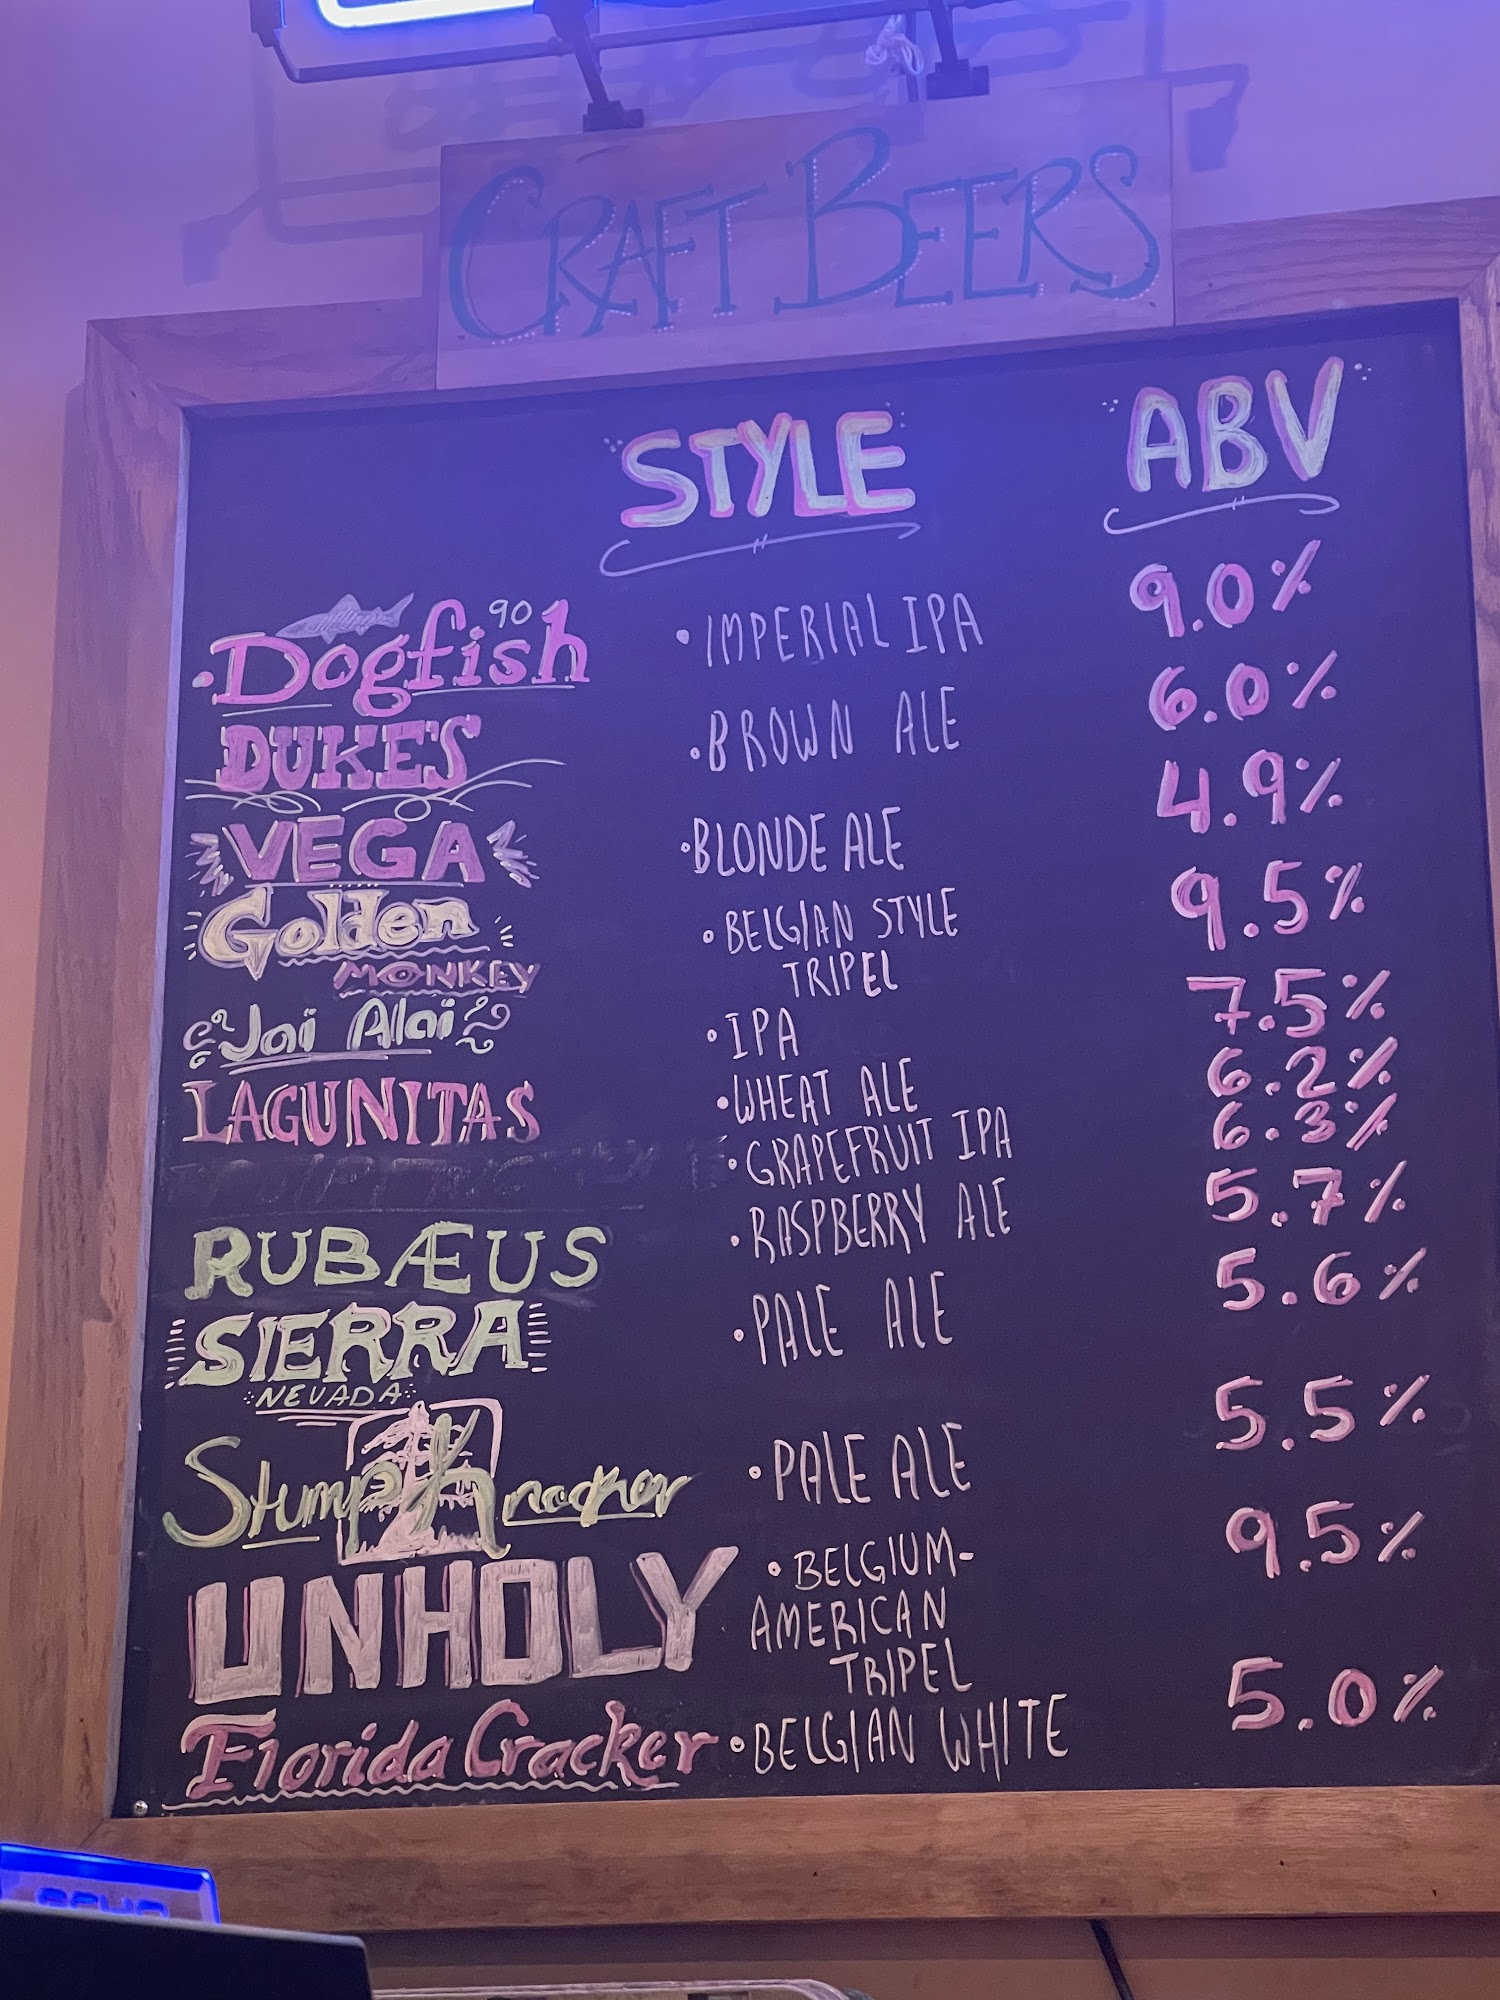 CRAFT BEERS
STYLE ABV
• Dogfish 90 • IMPERIAL IPA 9.0%
DUKE'S • BROWN ALE 6.0%
VEGA • BLONDE ALE 4.9%
Golden • BELGIAN STYLE 9.5%
MONKEY TRIPEL
Jai Alai • IPA 7.5%
LAGUNITAS • WHEAT ALE 6.2%
• GRAPEFRUIT IPA 6.3%
RUBÆUS • RASPBERRY ALE 5.7%
SIERRA • PALE ALE 5.6%
NEVADA
Stump Knocker • PALE ALE 5.5%
UNHOLY • BELGIUM- 9.5%
AMERICAN
TRIPEL
Florida Cracker • BELGIAN WHITE 5.0%